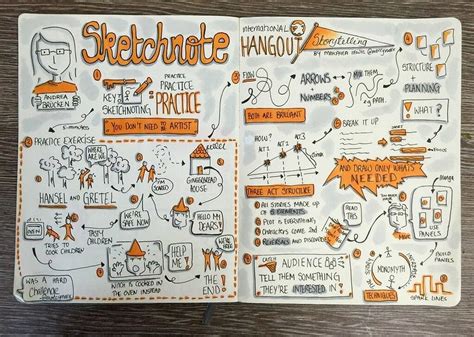 Sketchnote
ANDREA
BRÜCKEN
5 minutes
1
KEY
SKETCHNOTING
PRACTICE
PRACTICE
PRACTICE
YOU DON'T NEED
ARTIST
PRACTICE EXERCISE
WHERE
ARE WE
HANSEL AND GRETEL
GINGERBREAD
HOUSE
WE'RE
SAFE NOW
HELLO MY
DEARS!
TASTY
CHILDREN
TRIES TO
COOK CHILDREN
HELP
ME!
WAS A HARD
Challenge
WITCH IS COOKED IN
THE OVEN INSTEAD
THE
END!
International
HANGOUT
Storytelling
3
ARROWS
NUMBERS
MIX THEM
PATH
BOTH ARE BRILLIANT
4
STRUCTURE
PLANNING
WHAT?
BREAK IT UP
HOW?
ACT 1
ACT 2
ACT 3
AND DRAW ONLY WHAT'S
NEEDED
THREE ACT STRUCTURE
ALL STORIES MADE UP
OF 5 ELEMENTS
PLOT IS EVERYTHING
CHARACTERS COME 2nd
REVERSALS AND DISCOVERIES
READ
THIS
Manga
USE
PANELS
BUILD
PANELS
AUDIENCE
TELL THEM SOMETHING
THEY'RE INTERESTED IN!
MONOMYTH
TECHNIQUES
SPARK LINES